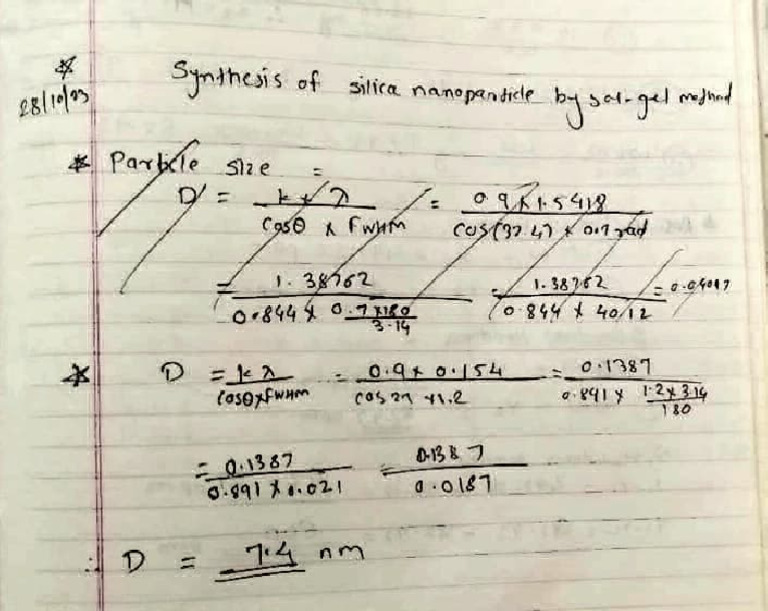 * Synthesis of silica nanoparticle by sol-gel method
28/10/23
* Particle size =
D = k x λ / cosθ x FWHM = 0.9 x 1.5418 / cos(32.47 x 0.7 rad
= 1.38762 / 0.844 x 0.7 x 180 / 3.14 = 1.38762 / 0.844 x 40.12 = 0.04097
* D = k λ / cosθ x FWHM = 0.9 x 0.154 / cos 27 x 1.2 = 0.1387 / 0.891 x 1.2 x 3.14 / 180
= 0.1387 / 0.891 x 0.021 = 0.1387 / 0.0187
∴ D = 7.4 nm